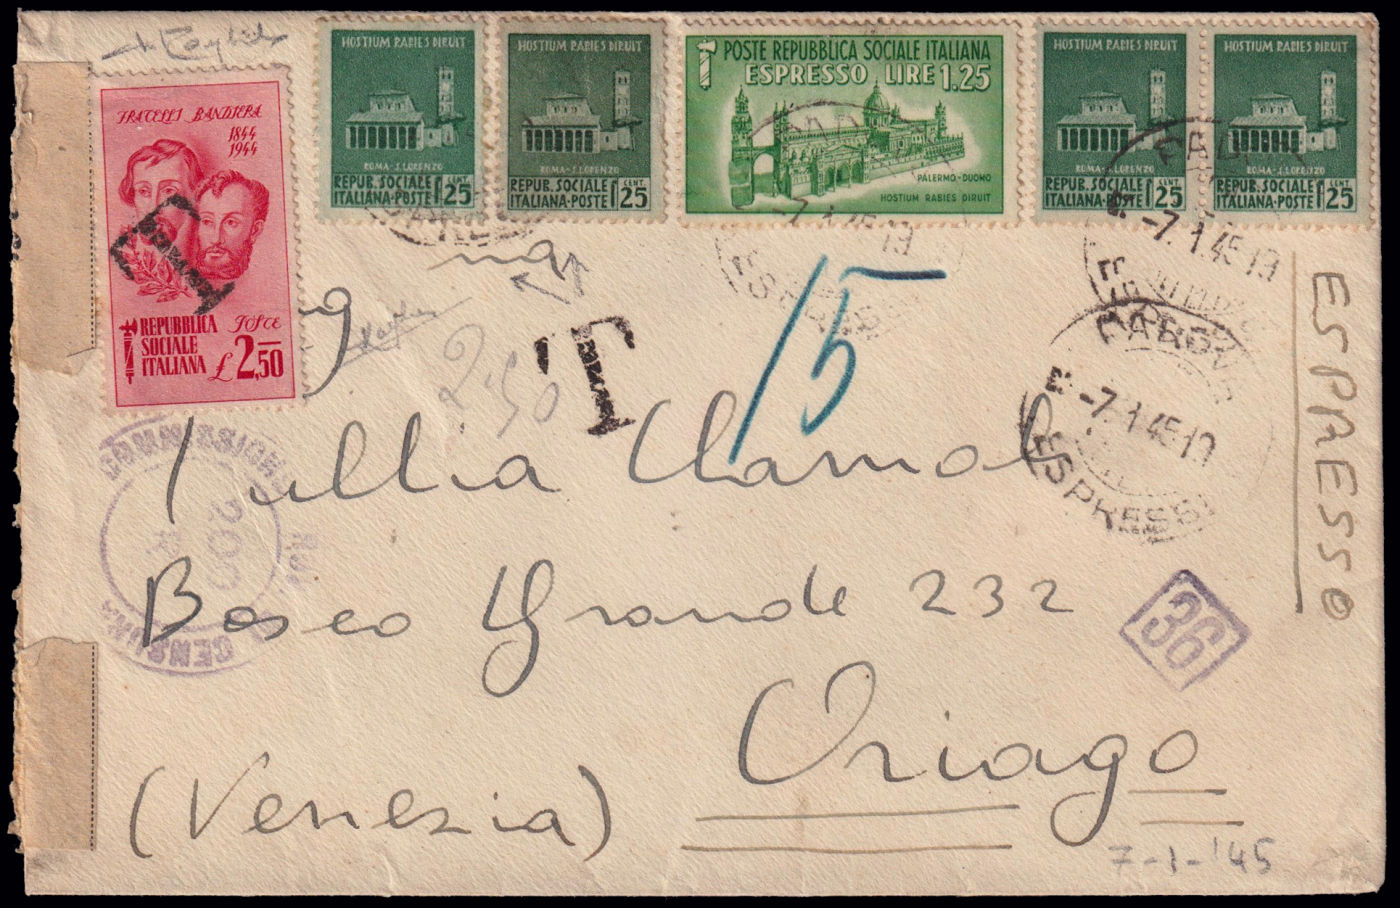 HOSTIUM RABIES DIRUIT
ROMA-S.LORENZO
REPUB. SOCIALE
ITALIANA-POSTE
CENT.
25
HOSTIUM RABIES DIRUIT
ROMA-S.LORENZO
REPUB. SOCIALE
ITALIANA-POSTE
CENT.
25
POSTE REPUBBLICA SOCIALE ITALIANA
ESPRESSO LIRE 1.25
PALERMO-DUOMO
HOSTIUM RABIES DIRUIT
HOSTIUM RABIES DIRUIT
ROMA-S.LORENZO
REPUB. SOCIALE
ITALIANA-POSTE
CENT.
25
HOSTIUM RABIES DIRUIT
ROMA-S.LORENZO
REPUB. SOCIALE
ITALIANA-POSTE
CENT.
25
FRATELLI BANDIERA
1844
1944
T
REPUBBLICA
SOCIALE
ITALIANA
POSTE
£2,50
-7.1.45-19
-7.1.45-19
PADOVA
-7.1.45-19
ESPRESSI
ESPRESSO
15
2.50
T
Tullia
Bosco Grande 232
Oriago
(Venezia)
COMMISSIONE
200
R
CENSURA
36
7-1-'45